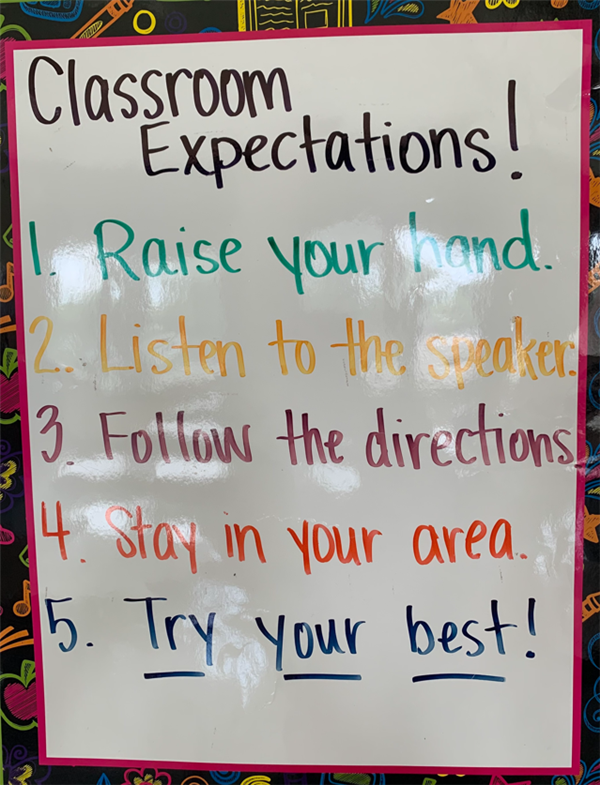 Classroom
Expectations!
1. Raise your hand.
2. Listen to the speaker.
3. Follow the directions.
4. Stay in your area.
5. Try your best!